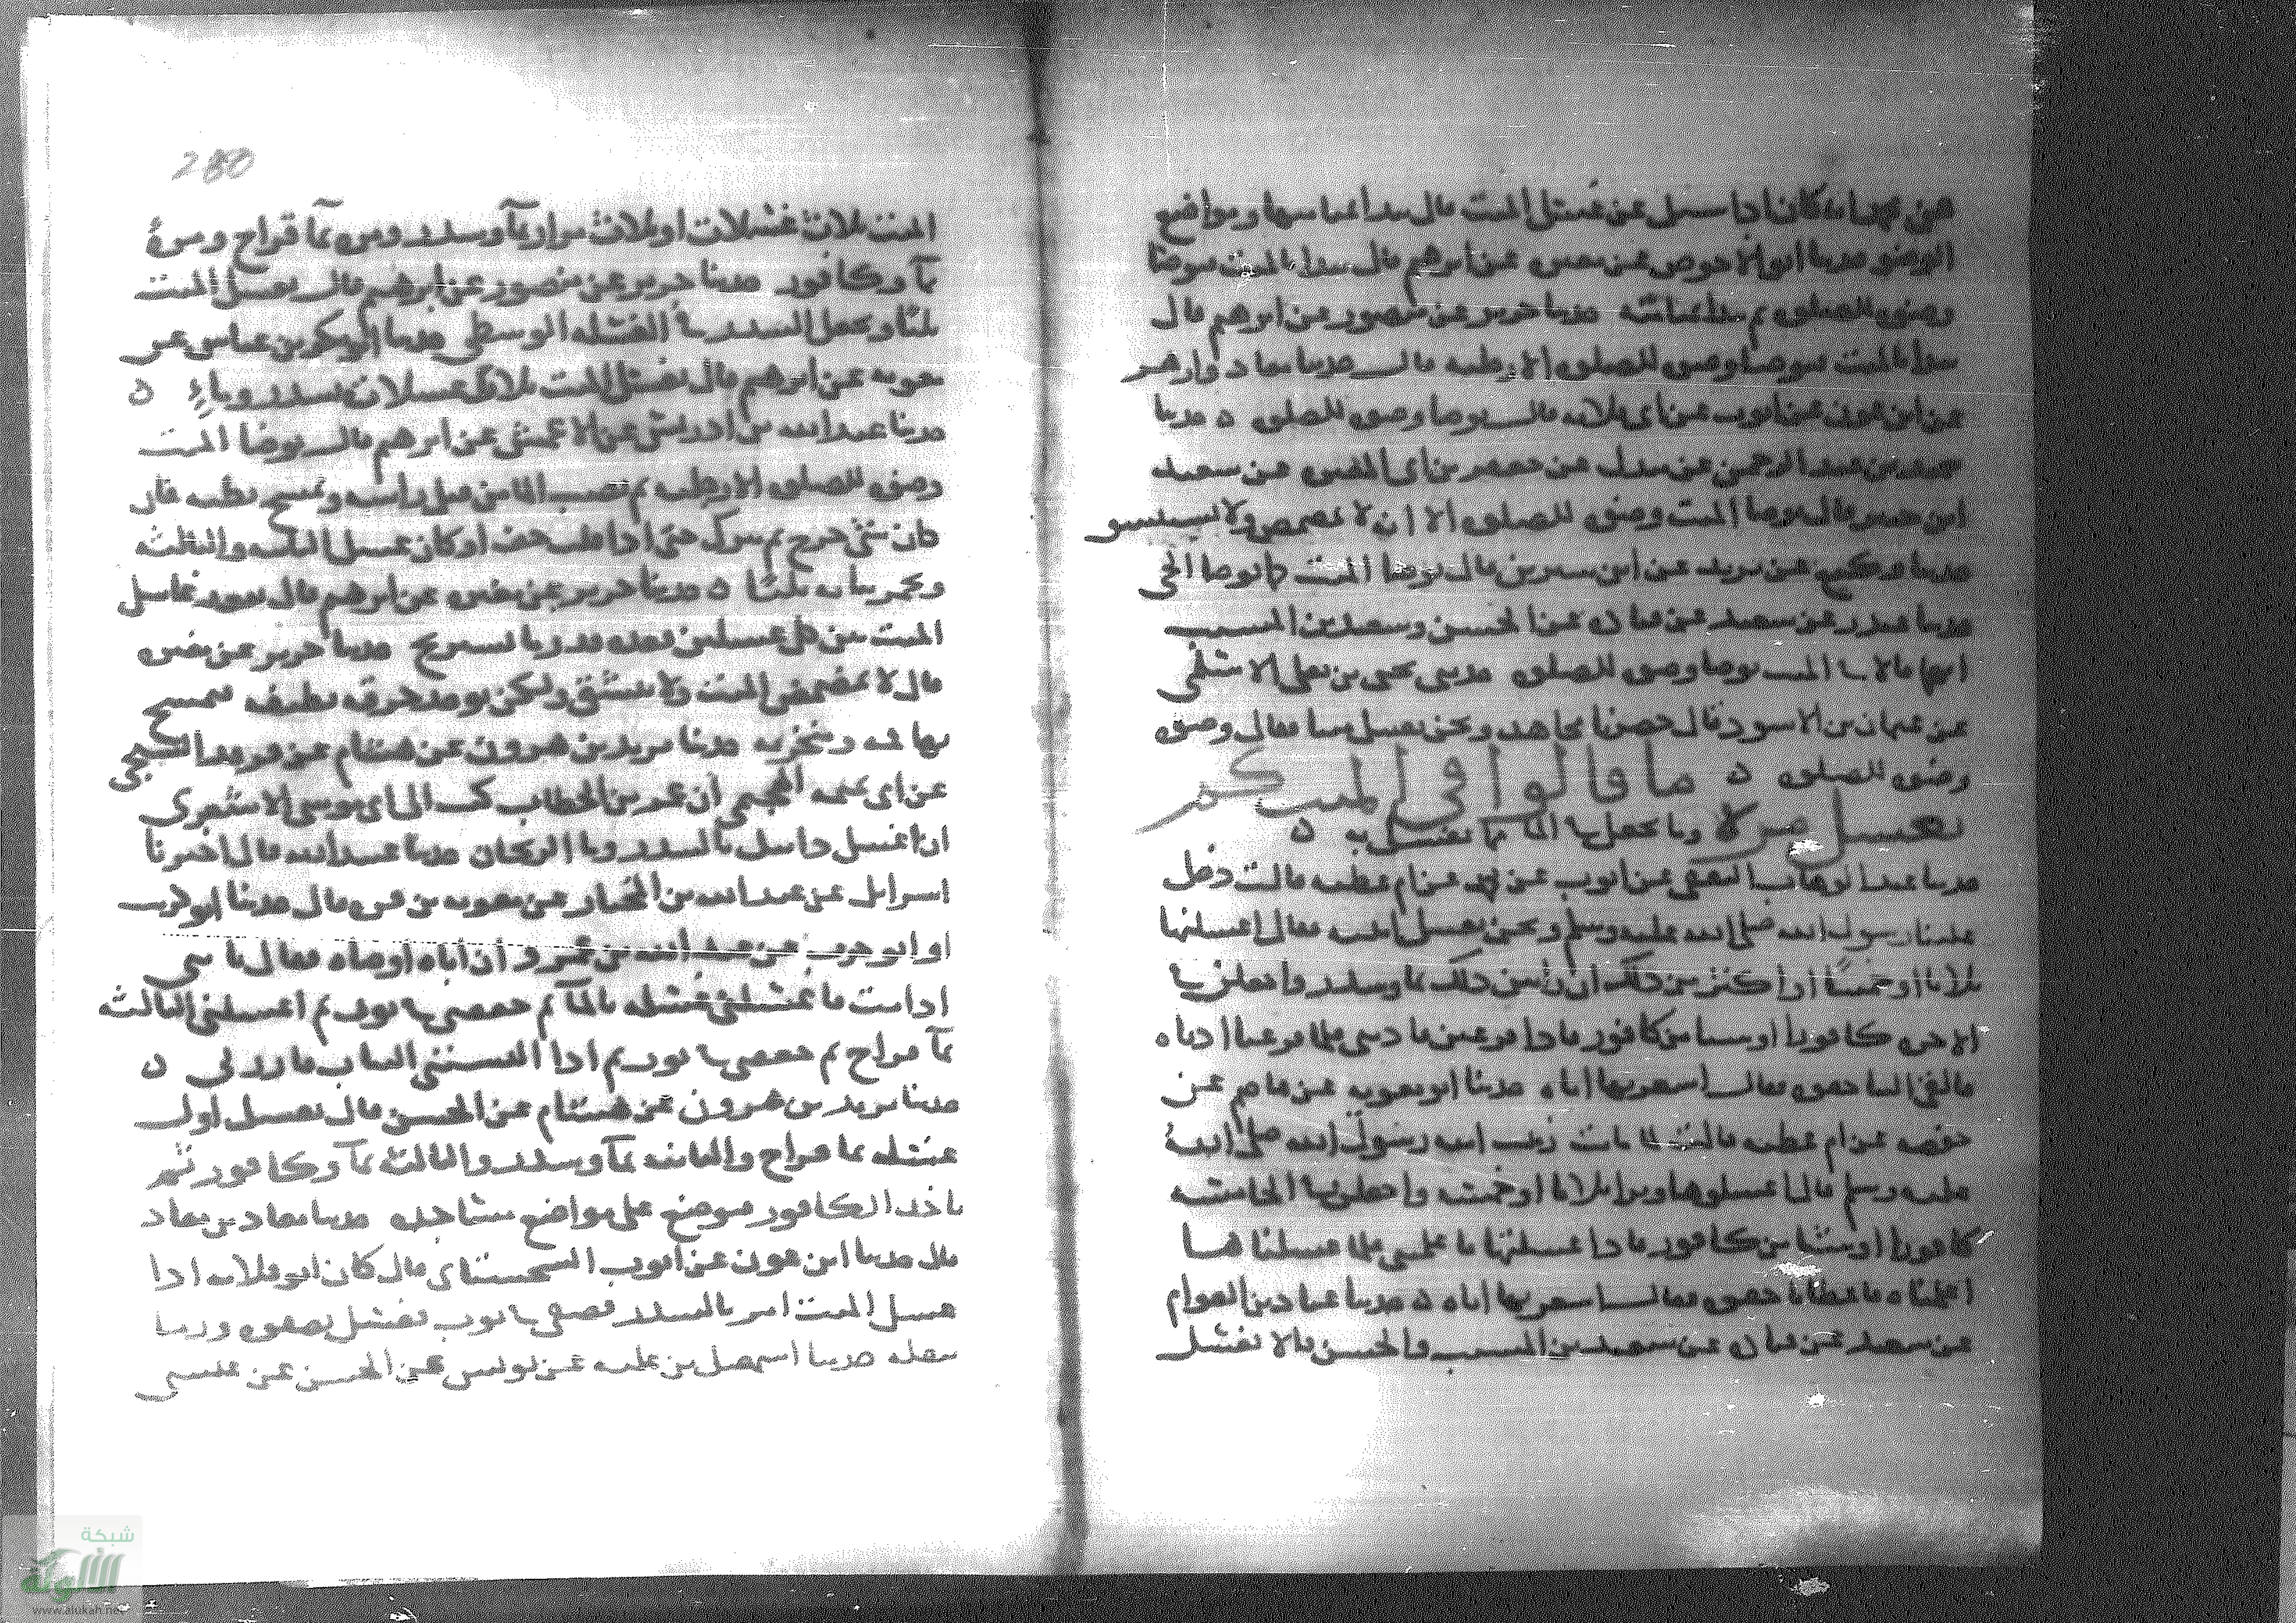 عن محمد انه كان اذا سئل عن غسل الميت قال يبدا بميامنها ومواضع
الوضو حدثنا ابو الاحوص عن مغيرة عن ابرهيم قال يبدا بالميت فيوضا
وضوه للصلوه ثم يبدا بميامنه حدثنا جرير عن منصور عن ابرهيم قال
يبدا بالميت فيوضا وضوه للصلوه الا رجليه قال حدثنا معاذ وازهر
عن ابن عون عن ايوب عن ابي قلابه قال يوضا وضوه للصلوه ه حدثنا
حميد بن عبد الرحمن عن مندل عن جعفر بن ابي المغيره عن سعيد
ابن جبير قال يوضا الميت وضوه للصلوه الا ان لا يمضمض ولا يستنشق
حدثنا وكيع عن يزيد عن ابن سيرين قال يوضا الميت كما يوضا الحي
حدثنا غندر عن سعيد عن قتاده عن الحسن وسعيد بن المسيب
انهما قالا الميت يوضا وضوه للصلوه حدثني يحيى بن يعلى الاسلمي
عن عثمان بن الاسود قال حضرنا مجاهد ونحن نغسل ميتا فقال وضوه
وضوه للصلوه ه ما قالوا في الميت كم
يغسل مره وما يجعل في الما مما يغسل به ه
حدثنا عبد الوهاب الثقفي عن ايوب عن محمد عن ام عطيه قالت دخل
علينا رسول الله صلى الله عليه وسلم ونحن نغسل ابنته فقال اغسلنها
ثلاثا او خمسا او اكثر من ذلك ان رايتن ذلك بما وسدر واجعلن في
الاخره كافورا او شيا من كافور فاذا فرغتن فاذنني فلما فرغنا اذناه
فالقى الينا حقوه فقال اشعرنها اياه حدثنا ابو معويه عن عاصم عن
حفصه عن ام عطيه قالت لما ماتت زينب ابنه رسول الله صلى الله
عليه وسلم قال اغسلوها وترا ثلاثا او خمسا واجعلن في الخامسه
كافورا او شيا من كافور فاذا غسلتنها فاعلمنني فلما غسلناها
اعلمناه فاعطانا حقوه فقال اشعرنها اياه ه حدثنا عباد بن العوام
عن سعيد عن قتاده عن سعيد بن المسيب والحسن قالا يغسل
280
الميت ثلاث غسلات او ثلاث مرار بما وسدر ومره بما قراح ومره
بما وكافور حدثنا جرير عن منصور عن ابرهيم قال يغسل الميت
ثلثا ويجعل السدر في الغسله الوسطى حدثنا ابو بكر بن عياش عن
مغيره عن ابرهيم قال يغسل الميت ثلاث غسلات بسدر وماء ه
حدثنا عبد الله بن ادريس عن الاعمش عن ابرهيم قال يوضا الميت
وضوه للصلوه الا رجليه ثم يصب الما من قبل راسه ويمسح بطنه فان
كان شي خرج ثم يترك حتى اذا قلت جف او كاد غسل الثانيه والثالثه
ويجمر ثيابه ثلثا ه حدثنا جرير عن مغيره عن ابرهيم قال
الميت بين كل غسلتين بعده قدر ما يستريح حدثنا جرير عن مغيره
قال لا يمضمض الميت ولا ينشق ولكن يوخذ خرقه نظيف فيمسح
بها فمه ومنخريه حدثنا يزيد بن هرون عن هشام عن
عن ابي تميمه الهجيمي ان عمر بن الخطاب كتب الى ابي موسى الاشعري
ان اغسل دانيال بالسدر وما الريحان حدثنا عبيد الله قال اخبرنا
اسرايل عن عبد الله بن المختار عن معويه بن قره قال حدثنا ابو كرب
او ابو حرب عن عبد الله بن عمرو ان اباه اوصاه فقال يا بني
اذا مت فاغسلني غسله بالما ثم جففني في ثوب ثم اغسلني الثالثه
بما قراح ثم جففني في ثوب ثم اذا البستني الثياب فازرني ه
حدثنا يزيد بن هرون عن هشام عن الحسن قال يغسل اول
غسله بما قراح والثانيه بما وسدر والثالثه بما وكافور ثم
ياخذ الكافور فيوضع على مواضع مساجده حدثنا معاذ بن معاذ
قال حدثنا ابن عون عن ايوب السختياني قال كان ابو قلابه اذا
غسل الميت امر بالسدر فصفي في ثوب فغسل بصفوه ورما
بثفله حدثنا اسمعيل بن عليه عن يونس عن الحسن عن عتي